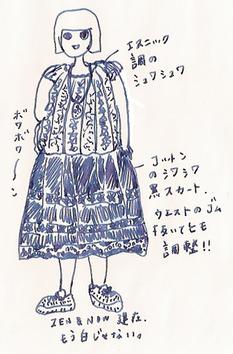 エスニック
調の
シュワシュワ
ボワボワーン
コットン
のシワシワ
黒スカート.
ウエストのゴム
抜いてヒモ
調整!!
ZEN & NOW 健在.
もう白じゃない。